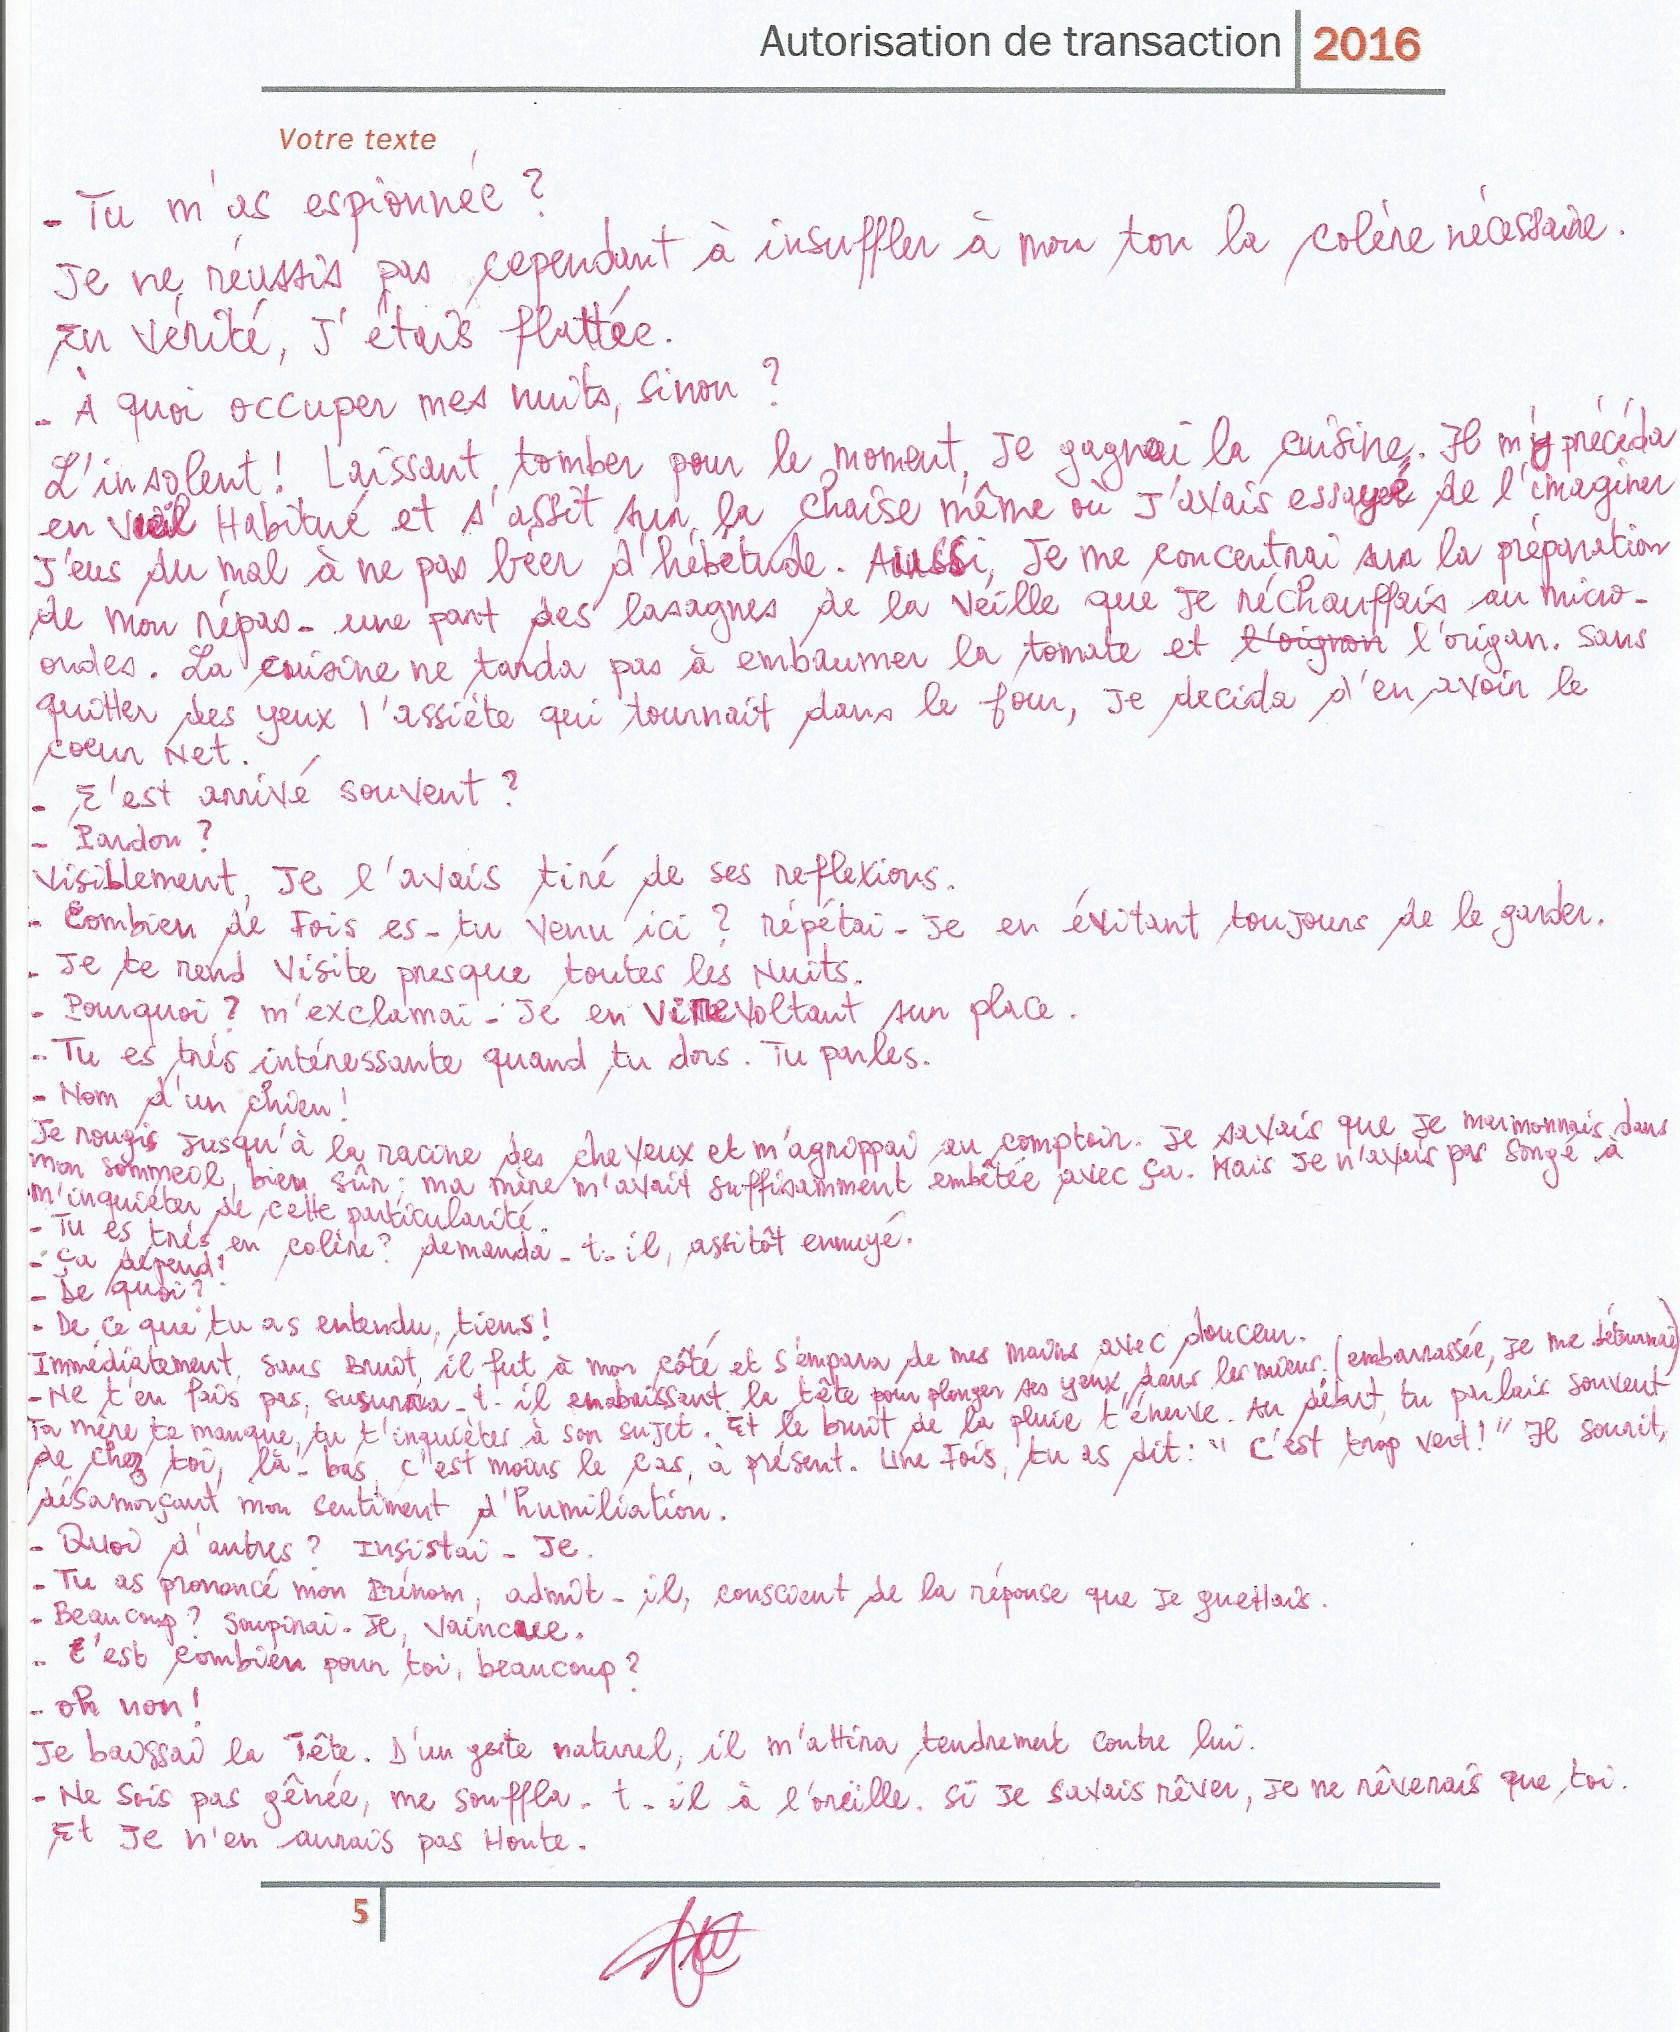 Autorisation de transaction 2016
Votre texte
- Tu m'as espionnée ?
Je ne réussis pas cependant à insuffler à mon ton la colère nécessaire.
En vérité, J'étais flattée.
- À quoi occuper mes nuits, sinon ?
L'insolent! Laissant tomber pour le moment, Je gagnai la cuisine. Il m'y précéda
en vieil Habitué et s'assit sur la chaise même où J'avais essayé de l'imaginer
J'eus du mal à ne pas béer d'hébétude. Aussi, Je me concentrai sur la préparation
de mon répas - une part des lasagnes de la veille que Je réchauffais au micro-
ondes. La cuisine ne tarda pas à embaumer la tomate et l'oignon l'origan. Sans
quitter des yeux l'assiéte qui tournait dans le four, Je decida d'en avoir le
coeur Net.
- C'est arrivé souvent ?
- Pardon ?
Visiblement, Je l'avais tiré de ses reflexions.
- Combien de Fois es-tu venu ici ? répétai-Je en évitant toujours de le garder.
- Je te rend visite presque toutes les Nuits.
- Pourquoi ? m'exclamai-Je en virevoltant sur place.
- Tu es très intéressante quand tu dors. Tu parles.
- Nom d'un chien !
Je rougis Jusqu'à la racine des cheveux et m'agrippai au comptoir. Je savais que Je marmonnais dans
mon sommeil, bien sûr ; ma mère m'avait suffisamment embêtée avec ça. Mais Je n'avais pas songé à
m'inquiéter de cette particularité.
- Tu es très en colère ? demanda-t-il, assitôt ennuyé.
- Ça dépend!
- De quoi ?
- De ce que tu as entendu, tiens !
Immédiatement, sans Bruit, il fut à mon côté et s'empara de mes mains avec douceur.
- Ne t'en fais pas, susurra-t-il en baissant la tête pour plonger ses yeux dans les miens. (embarrassée, Je me détournai)
Ta mère te manque, tu t'inquièter à son sujet. Et le bruit de la pluie t'énerve. Au début, tu parlais souvent
de chez toi, là-bas, c'est moins le cas, à présent. Une Fois, tu as dit : " C'est trop vert ! " Il sourit,
désamorçant mon sentiment d'humiliation.
- Quoi d'autres ? Insistai-Je.
- Tu as prononcé mon Prénom, admit-il, conscient de la réponse que Je guettais.
- Beaucoup ? Soupirai-Je, vaincue.
- C'est combien pour toi, beaucoup ?
- oh non !
Je baissai la Tête. D'un geste naturel, il m'attira tendrement contre lui.
- Ne sois pas gênée, me souffla-t-il à l'oreille. Si Je savais rêver, Je ne rêverais que toi.
Et Je n'en aurais pas Honte.
5